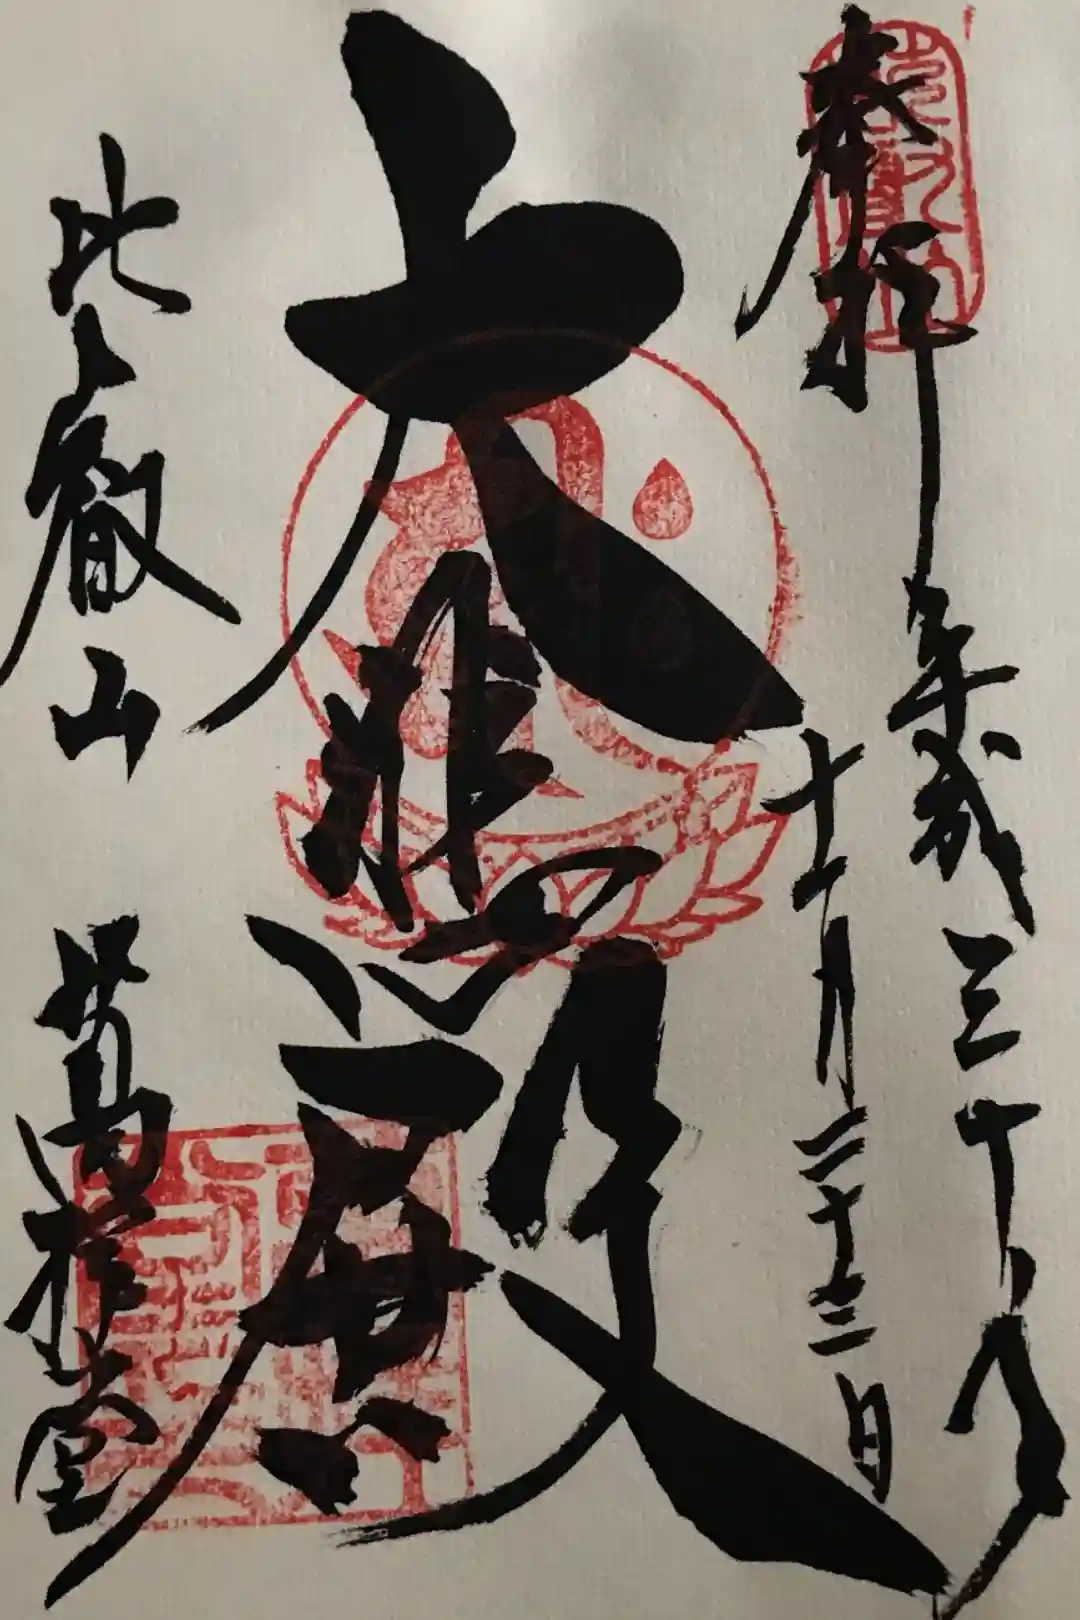 奉拝
平成三十年
十一月二十三日
大悲殿
比叡山
横川中堂